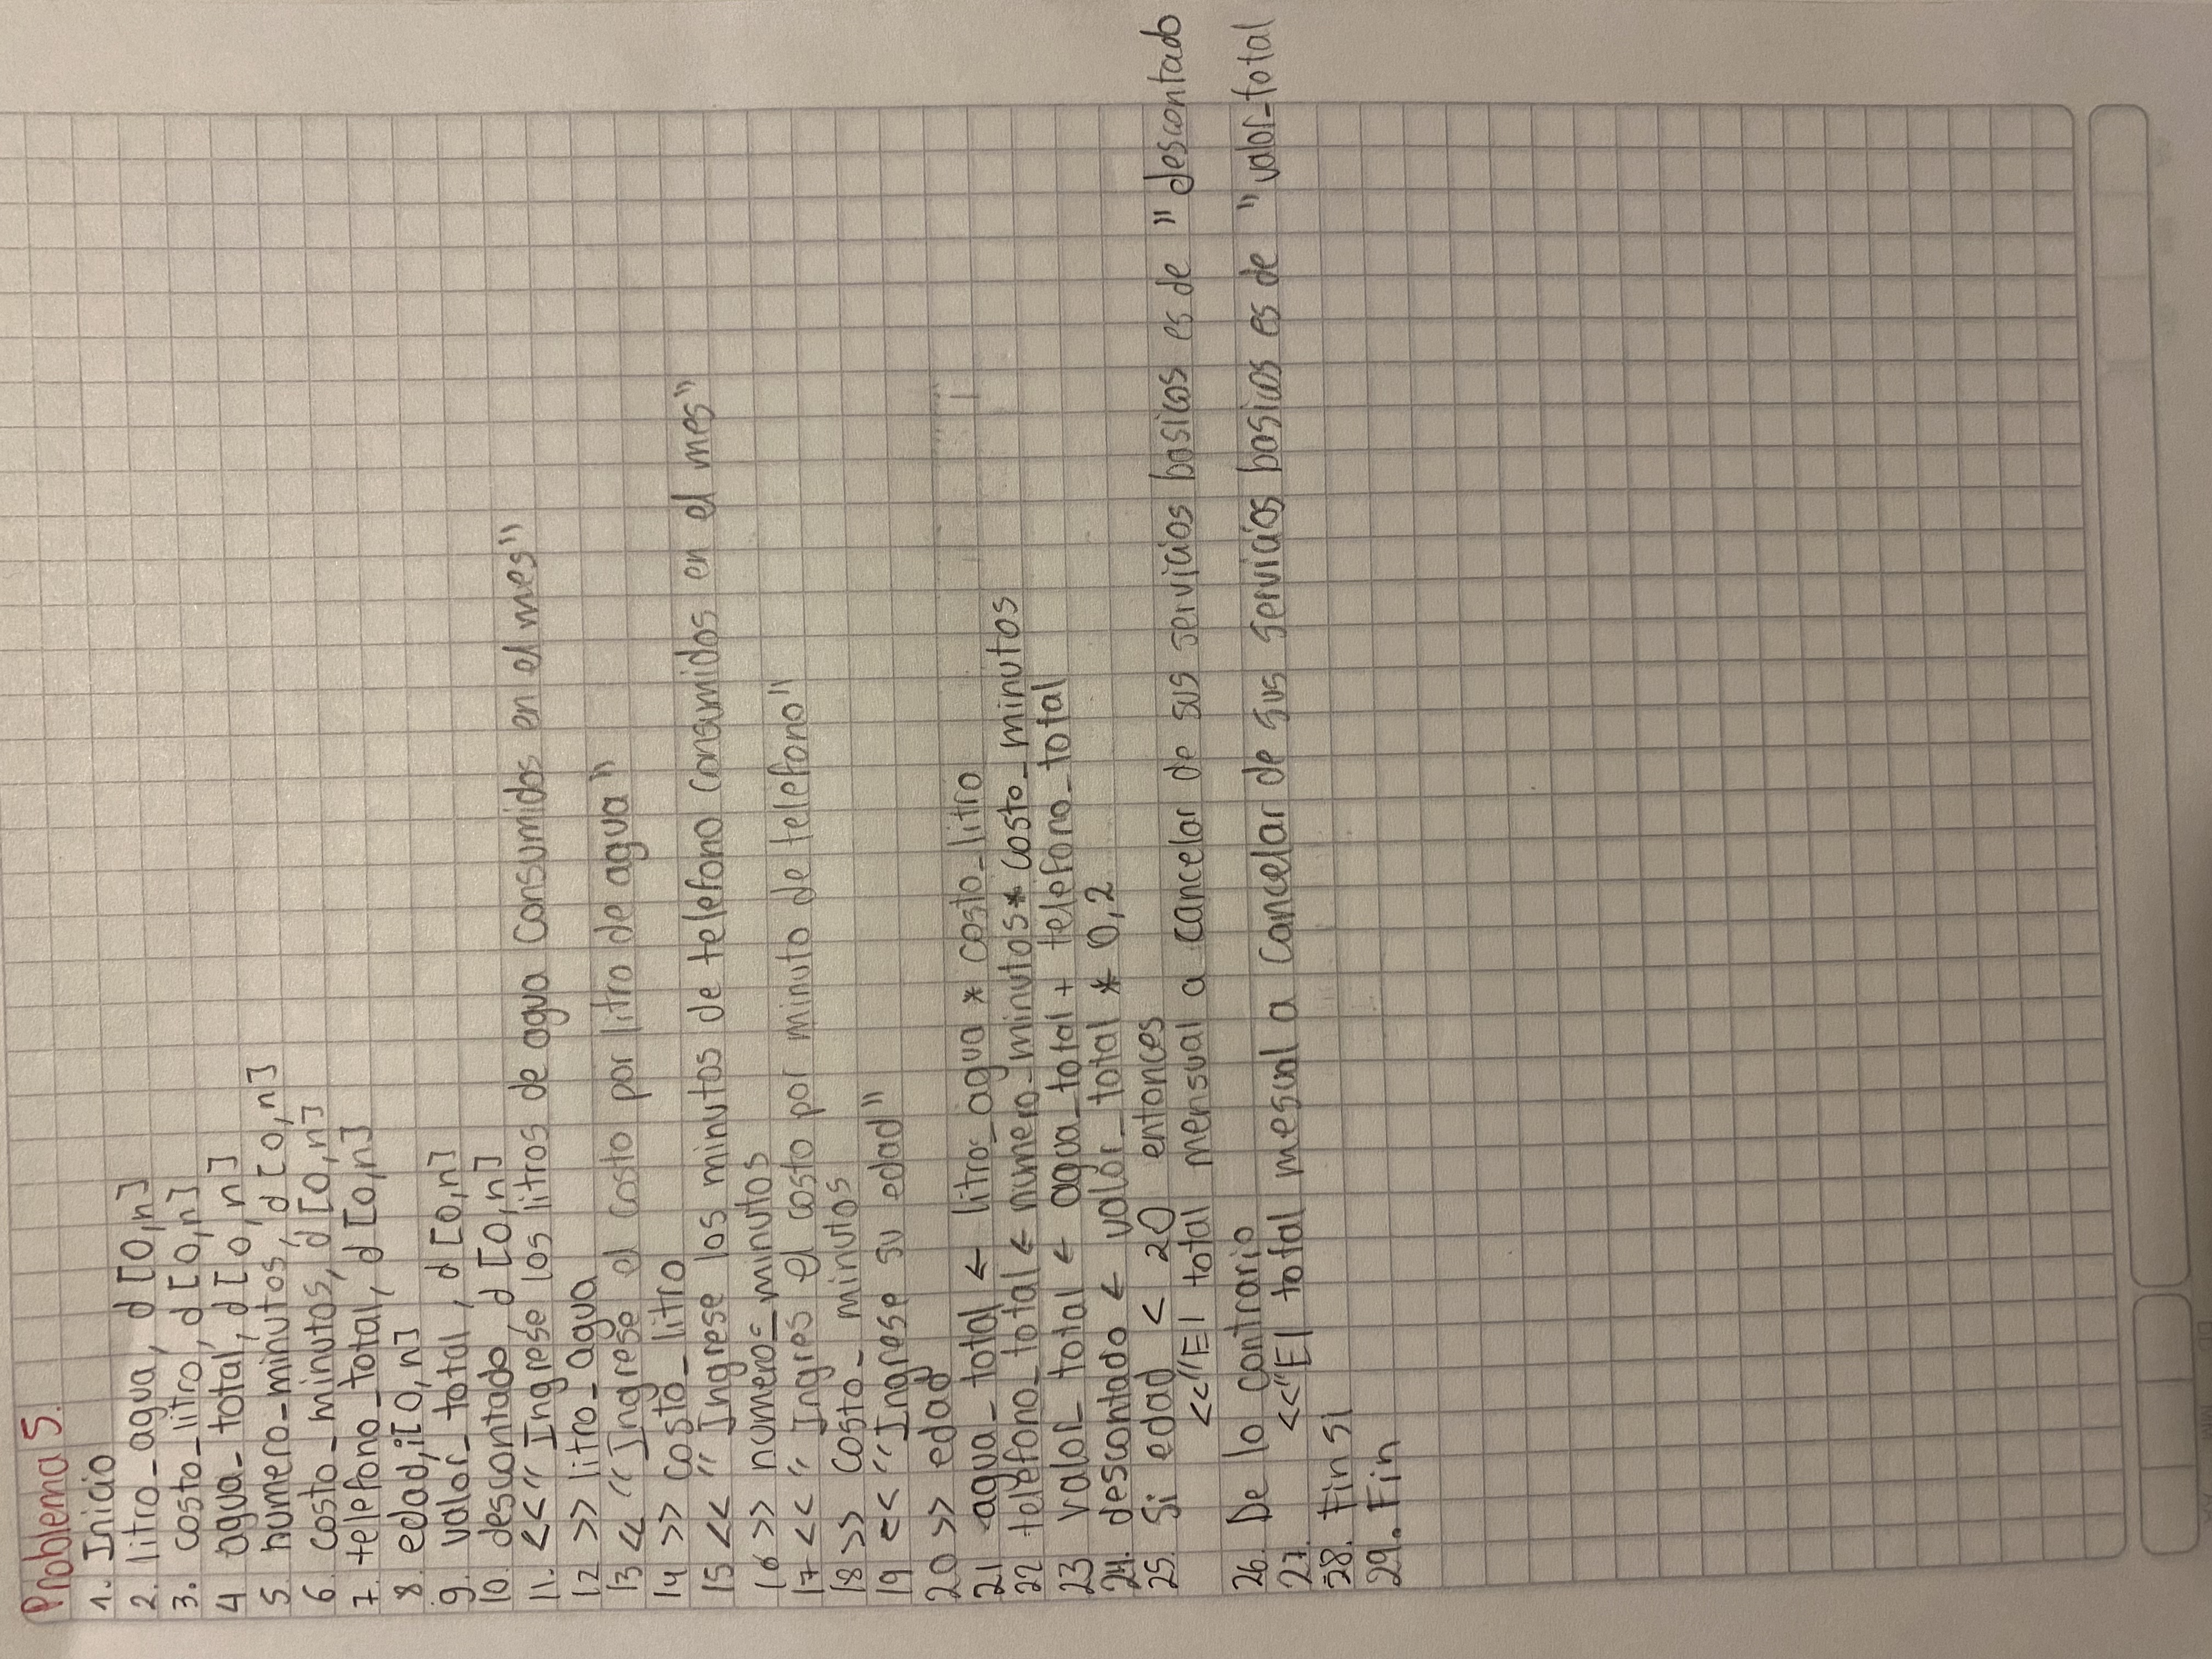 Problema 5.
1. Inicio
2. litro_agua, d [0,n]
3. costo_litro, d [0,n]
4 agua_total, d [0,n]
5 numero_minutos, d [0,n]
6. costo_minutos, d [0,n]
7. telefono_total, d [0,n]
8. edad, i [0,n]
9. valor_total, d [0,n]
10. descontado, d [0,n]
11. <<"Ingrese los litros de agua consumidos en el mes"
12 >> litro_agua
13 << "Ingrese el costo por litro de agua"
14 >> costo_litro
15 << "Ingrese los minutos de telefono consumidos en el mes"
16 >> numero_minutos
17 << "Ingres el costo por minuto de telefono"
18 >> costo_minutos
19 << "Ingrese su edad"
20 >> edad
21 agua_total ← litro_agua * costo_litro
22 telefono_total ← numero_minutos * costo_minutos
23 valor_total ← agua_total + telefono_total
24. descontado ← valor_total * 0,2
25. Si edad < 20 entonces
<<"El total mensual a cancelar de sus servicios basicos es de " descontado
26. De lo contrario
27. <<"El total mesual a cancelar de sus servicios basicos es de " valor_total
28. Fin si
29. Fin